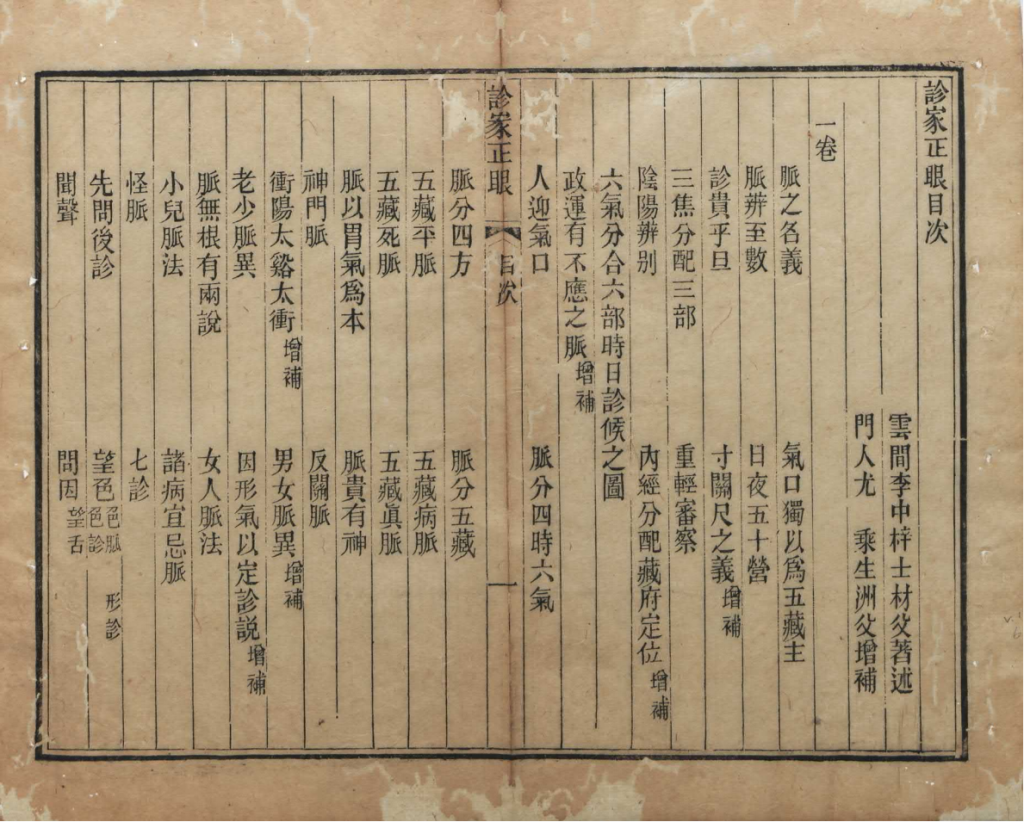 診家正眼目次
雲間李中梓士材父著述
門人尤 乘生洲父增補
一卷
脈之名義 氣口獨以爲五藏主
脈辨至數 日夜五十營
診貴乎旦 寸關尺之義增補
三焦分配三部 重輕審察
陰陽辨别 內經分配藏府定位增補
六氣分合六部時日診候之圖
政運有不應之脈增補
人迎氣口 脈分四時六氣
診家正眼 目次 一
脈分四方 脈分五藏
五藏平脈 五藏病脈
五藏死脈 五藏眞脈
脈以胃氣爲本 脈貴有神
神門脈 反關脈
衝陽太谿太衝增補 男女脈異增補
老少脈異 因形氣以定診説增補
脈無根有兩說 女人脈法
小兒脈法 諸病宜忌脈
怪脈 七診
先問後診 望色色脈色診 形診
聞聲 問因望舌